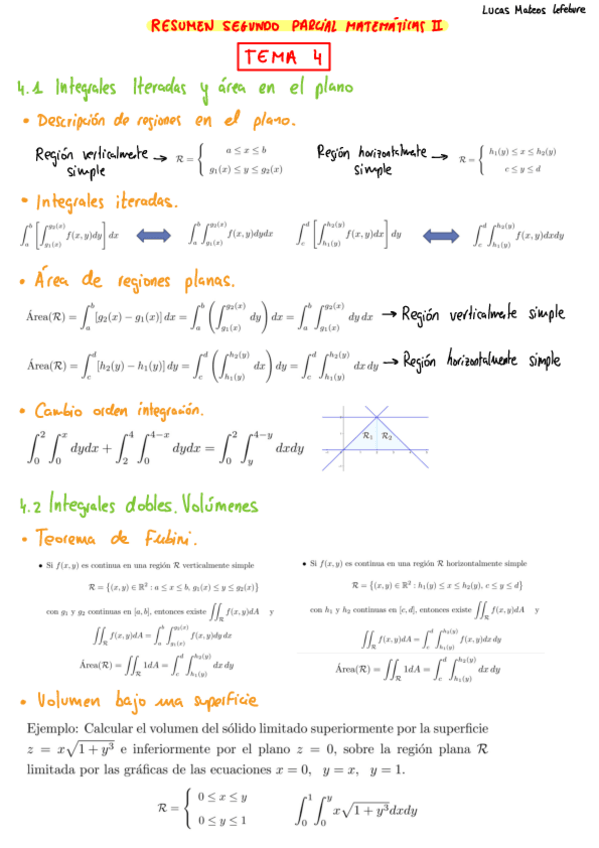 Lucas Mateos Lefebvre
RESUMEN SEGUNDO PARCIAL MATEMÁTICAS II
TEMA 4
4.1 Integrales Iteradas y área en el plano
• Descripción de regiones en el plano.
Región verticalmente simple → R = { a ≤ x ≤ b
g₁(x) ≤ y ≤ g₂(x)
Región horizontalmente simple → R = { h₁(y) ≤ x ≤ h₂(y)
c ≤ y ≤ d
• Integrales iteradas.
∫_a^b [∫_{g₁(x)}^{g₂(x)} f(x,y)dy] dx ⟺ ∫_a^b ∫_{g₁(x)}^{g₂(x)} f(x,y)dydx ∫_c^d [∫_{h₁(y)}^{h₂(y)} f(x,y)dx] dy ⟺ ∫_c^d ∫_{h₁(y)}^{h₂(y)} f(x,y)dxdy
• Área de regiones planas.
Área(R) = ∫_a^b [g₂(x) − g₁(x)] dx = ∫_a^b (∫_{g₁(x)}^{g₂(x)} dy) dx = ∫_a^b ∫_{g₁(x)}^{g₂(x)} dy dx → Región verticalmente simple
Área(R) = ∫_c^d [h₂(y) − h₁(y)] dy = ∫_c^d (∫_{h₁(y)}^{h₂(y)} dx) dy = ∫_c^d ∫_{h₁(y)}^{h₂(y)} dx dy → Región horizontalmente simple
• Cambio orden integración.
∫_0^2 ∫_0^x dydx + ∫_2^4 ∫_0^{4−x} dydx = ∫_0^2 ∫_y^{4−y} dxdy
R₁ R₂
4.2 Integrales dobles. Volúmenes
• Teorema de Fubini.
• Si f(x,y) es continua en una región R verticalmente simple
R = {(x,y) ∈ ℝ² : a ≤ x ≤ b, g₁(x) ≤ y ≤ g₂(x)}
con g₁ y g₂ continuas en [a,b], entonces existe ∬_R f(x,y)dA y
∬_R f(x,y)dA = ∫_a^b ∫_{g₁(x)}^{g₂(x)} f(x,y)dy dx
Área(R) = ∬_R 1dA = ∫_c^d ∫_{h₁(y)}^{h₂(y)} dx dy
• Si f(x,y) es continua en una región R horizontalmente simple
R = {(x,y) ∈ ℝ² : h₁(y) ≤ x ≤ h₂(y), c ≤ y ≤ d}
con h₁ y h₂ continuas en [c,d], entonces existe ∬_R f(x,y)dA y
∬_R f(x,y)dA = ∫_c^d ∫_{h₁(y)}^{h₂(y)} f(x,y)dx dy
Área(R) = ∬_R 1dA = ∫_c^d ∫_{h₁(y)}^{h₂(y)} dx dy
• Volumen bajo una superficie
Ejemplo: Calcular el volumen del sólido limitado superiormente por la superficie
z = x√(1 + y³) e inferiormente por el plano z = 0, sobre la región plana R
limitada por las gráficas de las ecuaciones x = 0, y = x, y = 1.
R = { 0 ≤ x ≤ y
0 ≤ y ≤ 1
∫_0^1 ∫_0^y x√(1 + y³)dxdy